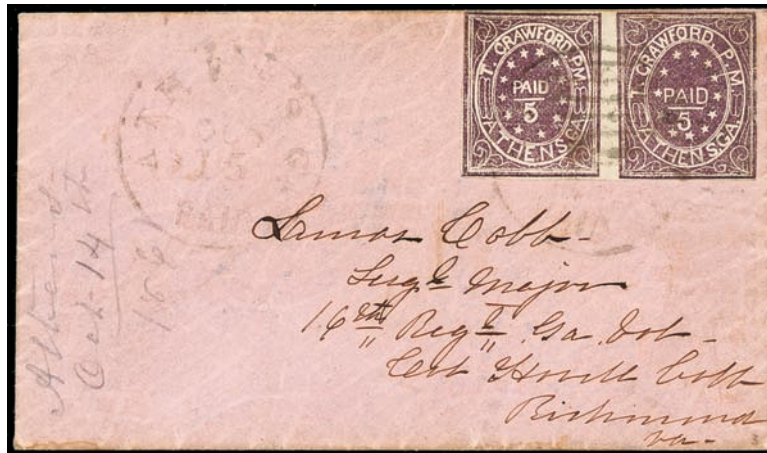 T. CRAWFORD, P.M.
PAID
5
ATHENS, GA.
T. CRAWFORD, P.M.
PAID
5
ATHENS, GA.
15
PAID
Athens
Oct 14th
1861
Lamar Cobb -
Sergt Major
16th Regt Ga. Vol -
Col Howell Cobb
Richmond
Va -